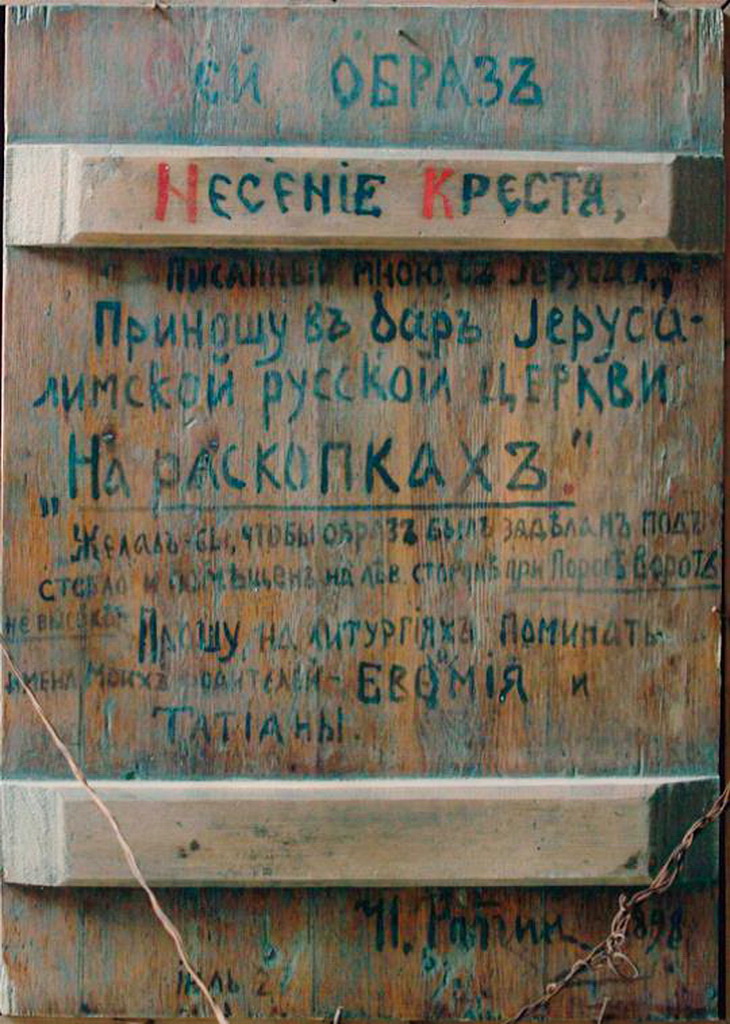 Сей ОБРАЗЪ
НЕСЕНІЕ КРЕСТА,
ПИСАННЫЙ МНОЮ ВЪ ЈЕРУСАЛ.,
Приношу въ даръ Јеруса-
лимской русской ЦЕРКВИ
„На РАСКОПКАХЪ."
Желалъ-бы, чтобы образъ былъ задѣланъ подъ
стекло и помѣщенъ на лѣв. сторонѣ при Порогѣ Воротъ
Прошу на литургіяхъ Поминать
имена Моихъ родителей- ЕВѲИМІЯ и
ТАТІАНЫ.
И. Рѣпин. 1898